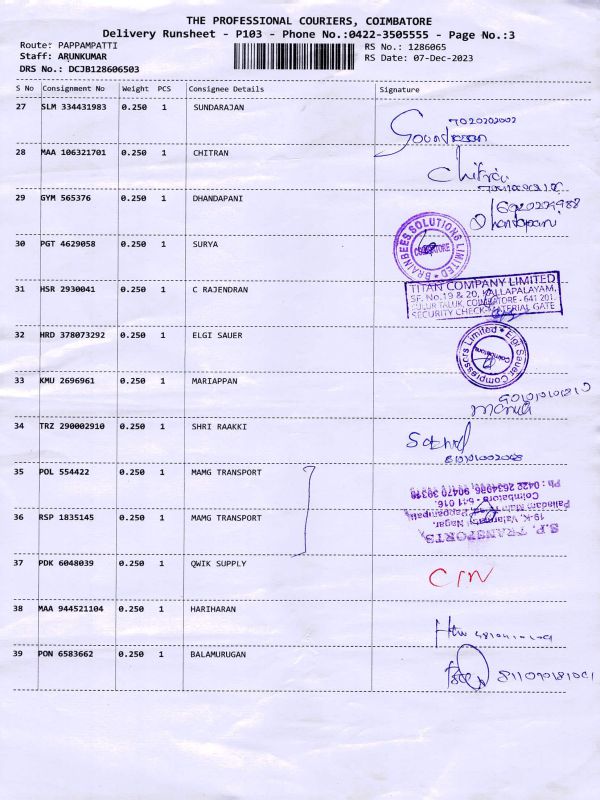 THE PROFESSIONAL COURIERS, COIMBATORE
Delivery Runsheet - P103 - Phone No.:0422-3505555 - Page No.:3
Route: PAPPAMPATTI
RS No.: 1286065
Staff: ARUNKUMAR
RS Date: 07-Dec-2023
DRS No.: DCJB128606503
S No Consignment No Weight PCS Consignee Details Signature
27 SLM 334431983 0.250 1 SUNDARAJAN
28 MAA 106321701 0.250 1 CHITRAN
Chitran
29 GYM 565376 0.250 1 DHANDAPANI
Dhandapani
30 PGT 4629058 0.250 1 SURYA
BRAINBEES SOLUTIONS LIMITED
COIMBATORE
31 HSR 2930041 0.250 1 C RAJENDRAN
TITAN COMPANY LIMITED
SF. No.19 & 20, KALLAPALAYAM,
SULUR TALUK, COIMBATORE - 641 201.
SECURITY CHECK MATERIAL GATE
32 HRD 378073292 0.250 1 ELGI SAUER
Elgi Sauer Compressors Limited
Coimbatore
33 KMU 2696961 0.250 1 MARIAPPAN
34 TRZ 290002910 0.250 1 SHRI RAAKKI
35 POL 554422 0.250 1 MAMG TRANSPORT
36 RSP 1835145 0.250 1 MAMG TRANSPORT
S.P. TRANSPORTS,
19-K, Nagar,
Palladam Main Road, Pappampatti,
Coimbatore - 641 016.
Ph : 0422 2634086 90470 39318
37 PDK 6048039 0.250 1 QWIK SUPPLY
38 MAA 944521104 0.250 1 HARIHARAN
39 PON 6583662 0.250 1 BALAMURUGAN